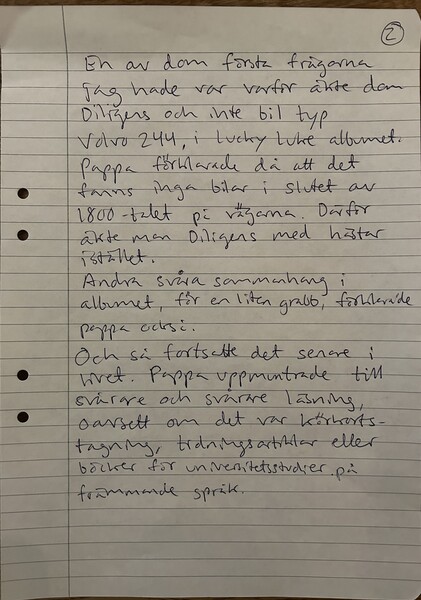 2
En av dom första frågorna
jag hade var varför åkte dom
Diligens och inte bil typ
Volvo 244, i Lucky Luke albumet.
Pappa förklarade då att det
fanns inga bilar i slutet av
1800-talet på vägarna. Därför
åkte man Diligens med hästar
istället.
Andra svåra sammanhang i
albumet, för en liten grabb, förklarade
pappa också.
Och så fortsatte det senare i
livet. Pappa uppmuntrade till
svårare och svårare läsning,
oavsett om det var körkorts-
tagning, tidningsartiklar eller
böcker för universitetsstudier på
främmande språk.